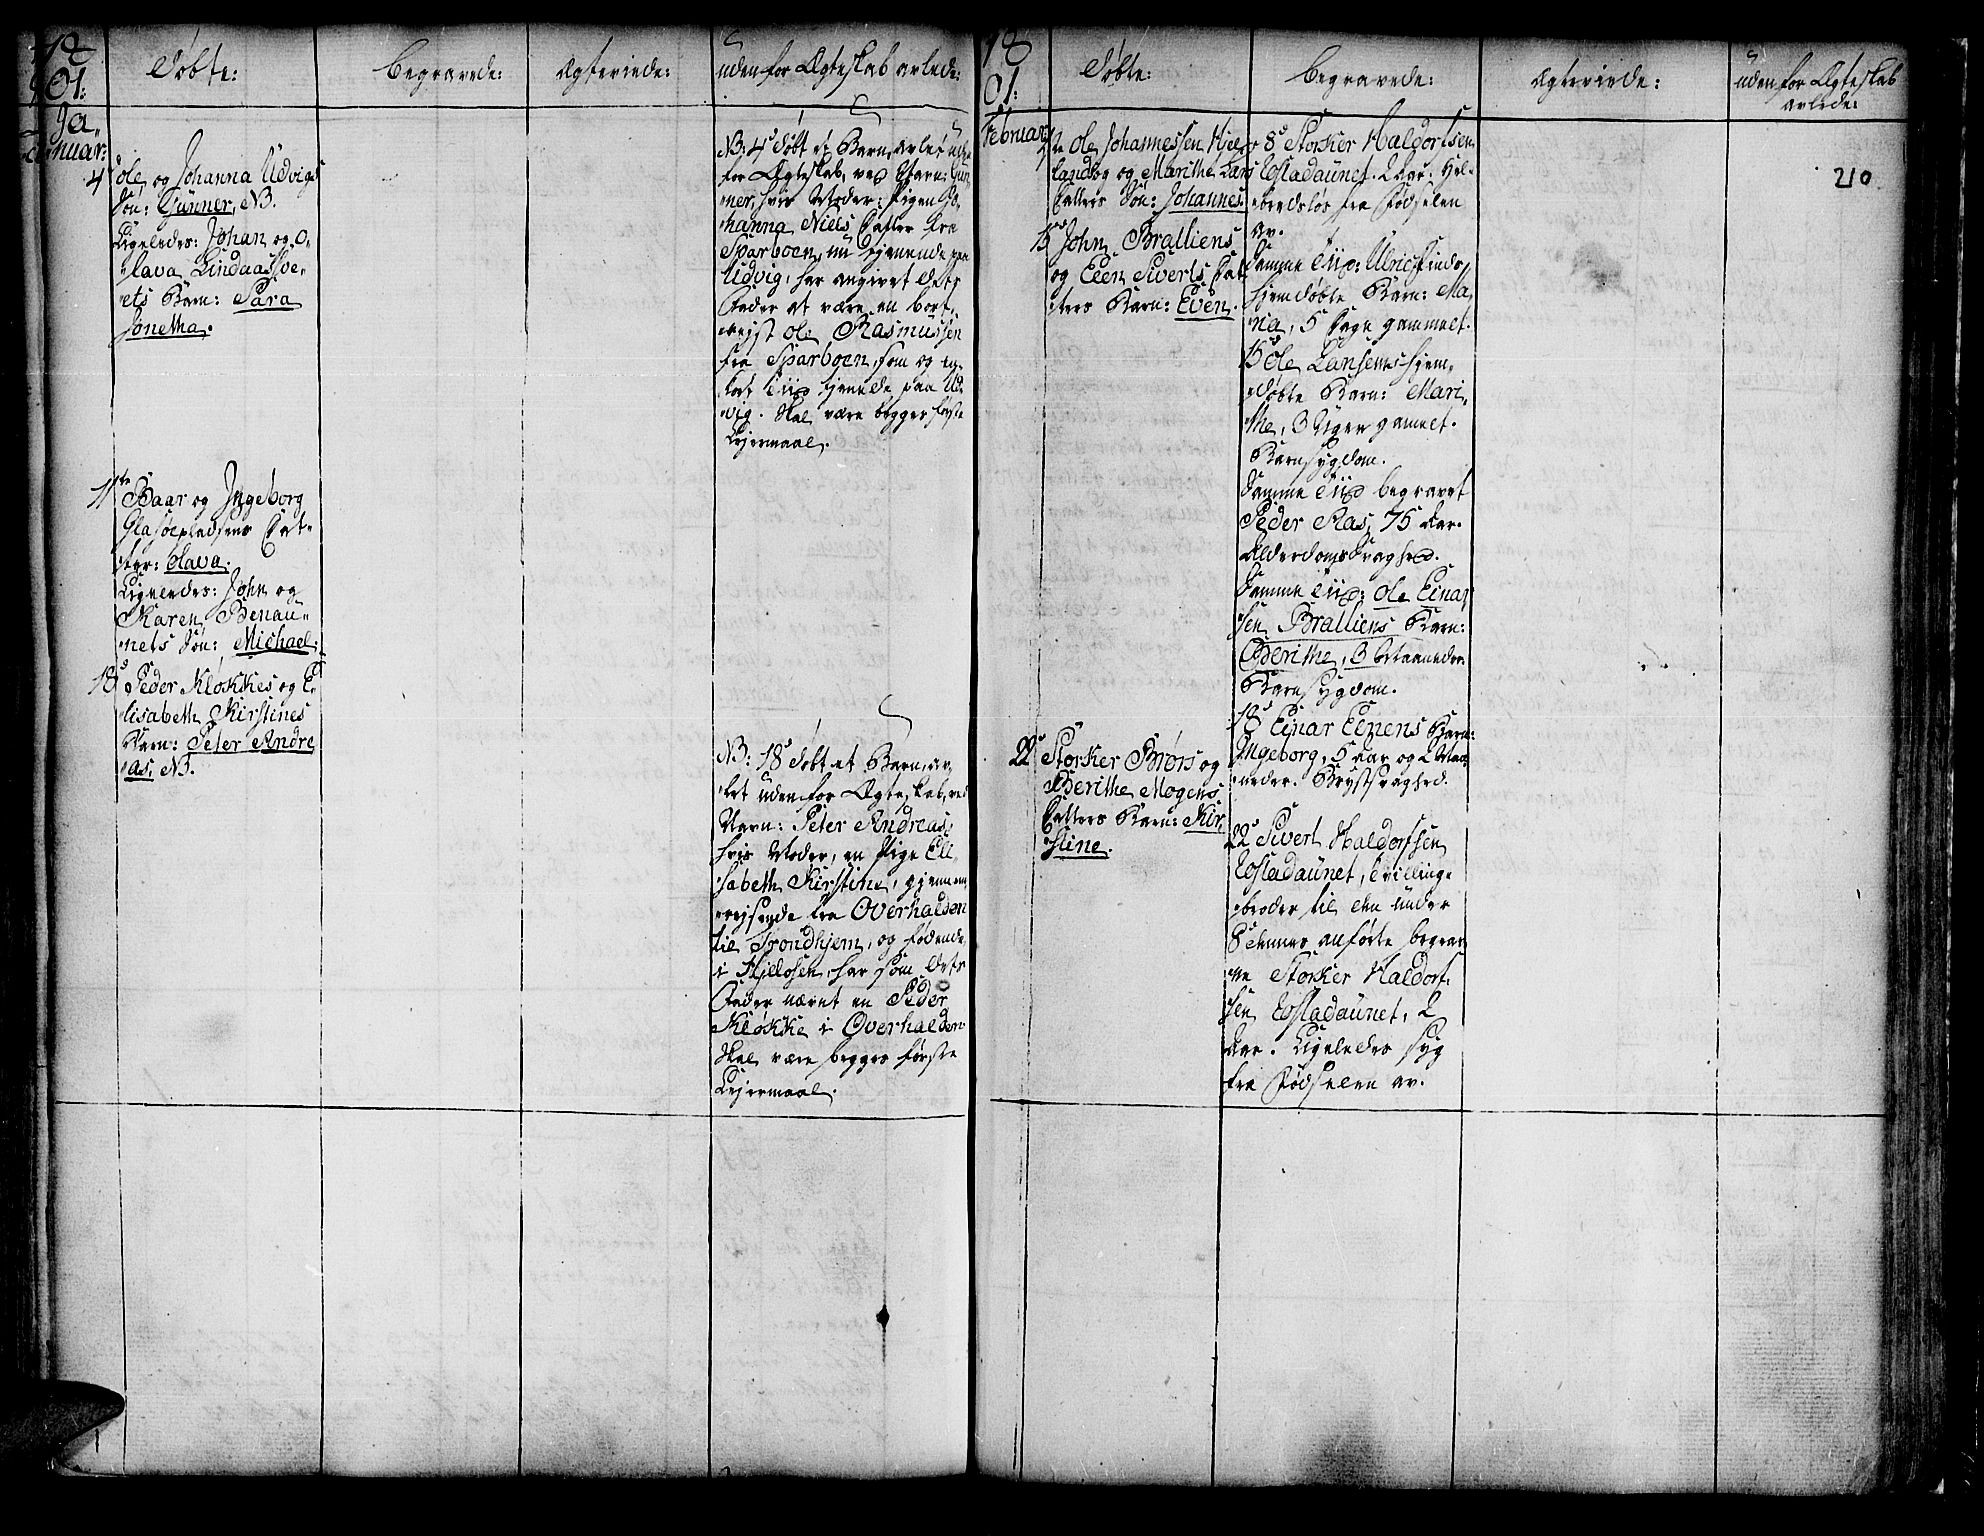 1801:
Døbte:
Begravede:
Ægteviede:
uden for Ægteskab avlede:
Januar:
4 Ole og Johanna Udvigs
Søn: Gunner, NB.
Ligeledes: Johan og O-
lava Lindaasshve-
ets Barn: Sara
Jonetha.
11te Baar og Ingeborg
Glasøepladsens Dat-
ter: Olava.
Ligeledes: John og
Karen Benau-
nets Søn: Michael.
18 Peder Kløkkes og E-
lisabeth Kirstines
Barn: Peter Andre-
as. NB.
NB: 4 døbt et Barn, avlet uden
for Ægteskab, ved Navn: Gun-
ner, hvis Moder: Pigen Jo-
hanna Niels Datter fra
Sparboen, nu tjenende paa
Udvig, har angivet dets
Fader at være en bort-
rejst Ole Rasmussen
fra Sparboen, som og en
kort Tiid tjenede paa Ud-
vig. Skal være begges første
Lejermaal.
NB: 18 døbt et Barn, av-
let uden for Ægteskab, ved
Navn: Peter Andreas,
hvis Moder, en Pige Eli-
sabeth Kirstine, gjennem-
rejsende fra Overhalden
til Trondhjem, og fødende
i Hjellosen, har som dets
Fader nævnt en Peder
Kløkke i Overhalden.
Skal være begges første
Lejermaal.
1801:
Døbte:
Begravede:
Ægteviede:
uden for Ægteskab
avlede:
210
Februar:
Ole Johannessen Hjel-
landsøg og Marithe Lars
Datters Søn: Johannes.
15 John Bralliens
og Elen Siverts Dat-
ters Barn: Even.
22 Storker Brørs og
Berithe Mogens
Datters Barn: Kir-
stine.
8 Storker Haldorsen
Eostadaunet. 2 Aar. Hel-
bredsløs fra Fødselen
av.
Samme Tiid: Ulrics Finds
hjemdøbte Barn: Ma-
ria, 5 Dage gammel.
15 Ole Lansems hjem-
døbte Barn: Mari-
the, 3 Uger gammel.
Barnsygdom.
Samme Tiid begravet
Peder Ras, 75 Aar.
Alderdomssvaghed.
Samme Tiid: Ole Einar-
sen Bralliens Barn:
Berithe, 3 Maaneder.
Barnsygdom.
18 Einar Elnens Barn:
Ingeborg, 5 Aar og 2 Maa-
neder. Brystsvaghed.
22 Sivert Haldorsen
Eostadaunet, Tvilling-
broder til den under
8 dennes anførte begrav-
ne Storker Haldor-
sen Eostadaunet, 2
Aar. Ligeledes syg
fra Fødselen av.